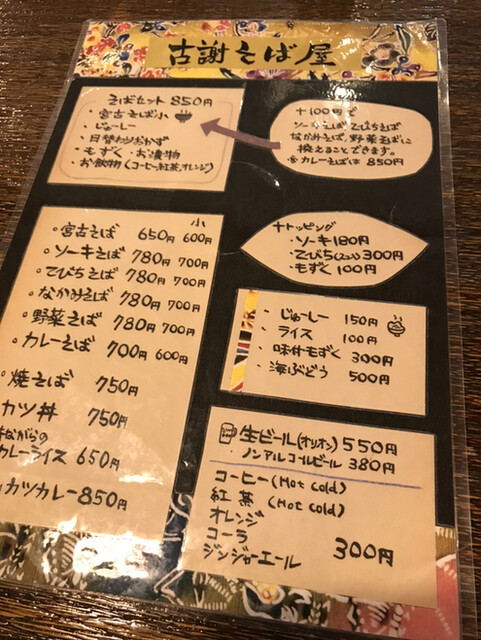 古謝そば屋
そばセット 850円
・宮古そば小
・じゅーしー
・日替わりおかず
・もずく・お漬物
・お飲物(コーヒー,紅茶,オレンジ)
+100円で
ソーキそば てびちそば
なかみそば,野菜そばに
換えることできます。
※カレーそばは 850円
小
○宮古そば 650円 600円
○ソーキそば 780円 700円
○てびちそば 780円 700円
○なかみそば 780円 700円
○野菜そば 780円 700円
○カレーそば 700円 600円
焼そば 750円
カツ丼 750円
ながらの
カレーライス 650円
カツカレー 850円
+トッピング
・ソーキ 180円
・てびち(2コ) 300円
・もずく 100円
・じゅーしー 150円
・ライス 100円
・味付もずく 300円
・海ぶどう 500円
生ビール(オリオン) 550円
・ノンアルコールビール 380円
コーヒー(Hot cold)
紅茶 (Hot cold)
オレンジ
コーラ
ジンジャーエール 300円